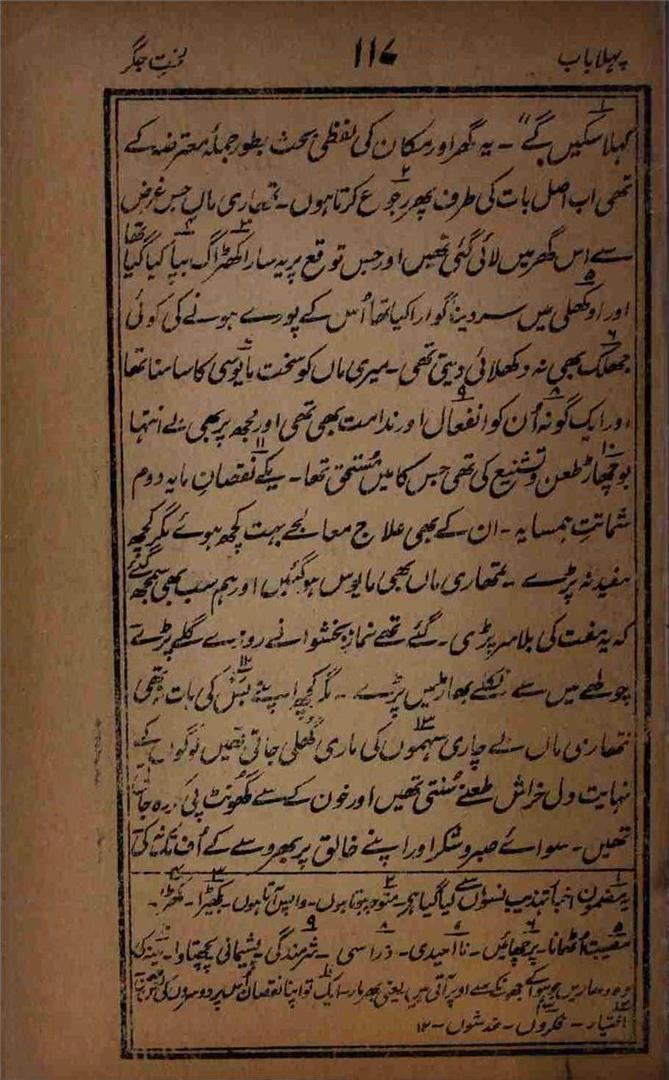 پہلا باب
116
لختِ جگر
کہلا سکیں گے" ۔ یہ گھر اور مکان کی لفظی بحث بطور جملۂ معترضہ کے
تھی اب اصل بات کی طرف پھر رجوع کرتا ہوں ۔ تمھاری ماں جس غرض
سے اس گھر میں لائی گئی تھیں اور جس توقع پر یہ سارا کھڑاگ بپا کیا گیا تھا
اور اوکھلی میں سر دینا گوارا کیا تھا اُس کے پورے ہونے کی کوئی
جھلک بھی نہ دکھلائی دیتی تھی ۔ میری ماں کو سخت مایوسی کا سامنا تھا
اور ایک گونہ اُن کو انفعال اور ندامت بھی تھی اور مجھ پر بھی بے انتہا
بوچھاڑ طعن و تشنیع کی تھی جس کا میں مُستحق تھا ۔ یکے نقصانِ مایہ دوم
شماتتِ ہمسایہ ۔ ان کے بھی علاج معالجے بہت کچھ ہوئے مگر کچھ
مفید نہ پڑے ۔ تمھاری ماں بھی مایوس ہوگئیں اور ہم سب بھی سمجھ گئے
کہ یہ مفت کی بلا سر پڑی ۔ گئے تھے نماز بخشوانے روزے گلے پڑے
چولھے میں سے نکلے بھاڑ میں پڑے ۔ مگر کچھ اپنے بس کی بات نہ تھی
تمھاری ماں بے چاری سہموں کی ماری گھلی جاتی تھیں لوگوں کے
نہایت دل خراش طعنے سُنتی تھیں اور خون کے سے گھونٹ پی کر رہ جاتی
تھیں ۔ سوائے صبر و شکر اور اپنے خالق پر بھروسے کے اُف نہ کی
۱ یہ مضمون اخبار تہذیب نسواں سے لیا گیا ہے ۲ متوجہ ہوتا ہوں ۔ واپس آتا ہوں ۔ ۳ بکھیڑا ۔ ۴ کھڑا ۔
۵ مصیبت اُٹھانا ۶ پرچھائیں ۔ ۷ نا امیدی ۔ ۸ ذرا سی ۔ ۹ شرمندگی پشیمانی پچھتاوا ۔ ۱۰
وہ دھاریں جو ہوا کے جھونکے سے اوپر آتی ہیں یعنی بھرمار ۔ ۱۱ ایک تو اپنا نقصان اُس پر دوسروں کی
۱۲ اختیار ۔ ۱۳ فکروں ۔ خدشوں ۔ ۱۲